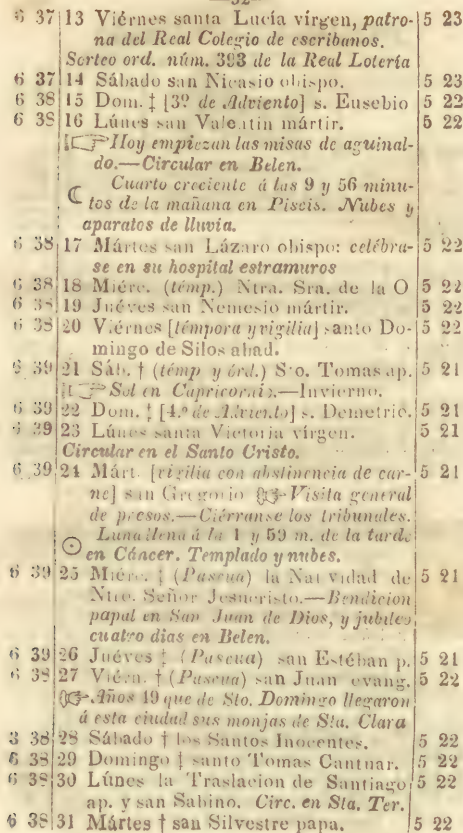 —32—
6 37 13 Viérnes santa Lucía vírgen, patro- 5 23
na del Real Colegio de escribanos.
Sorteo ord. núm. 393 de la Real Lotería
6 37 14 Sábado san Nicasio obispo. 5 23
6 38 15 Dom. ‡ [3º de Adviento] s. Eusebio 5 22
6 38 16 Lúnes san Valentin mártir. 5 22
[☞Hoy empiezan las misas de aguinal-
do.—Circular en Belen.
Cuarto creciente á las 9 y 56 minu-
☾ tos de la mañana en Piscis. Nubes y
aparatos de lluvia.
6 38 17 Mártes san Lázaro obispo: celébra- 5 22
se en su hospital estramuros
6 38 18 Miérc. (témp.) Ntra. Sra. de la O 5 22
6 38 19 Juéves san Nemesio mártir. 5 22
6 38 20 Viérnes [témpora y vigilia] santo Do- 5 22
mingo de Silos abad.
6 39 21 Sáb. † (témp y órd.) Sto. Tomas ap. 5 21
[☞Sol en Capricornio.—Invierno.
6 39 22 Dom. ‡ [4.º de Adviento] s. Demetrio. 5 21
6 39 23 Lúnes santa Victoria vírgen. 5 21
Circular en el Santo Cristo.
6 39 24 Márt. [vigilia con abstinencia de car- 5 21
ne] san Gregorio ☞Visita general
de presos.—Ciérranse los tribunales.
Luna llena á la 1 y 59 m. de la tarde
☉ en Cáncer. Templado y nubes.
6 39 25 Miérc. ‡ (Pascua) la Natividad de 5 21
Ntro. Señor Jesucristo.—Bendicion
papal en San Juan de Dios, y jubileo
cuatro dias en Belen.
6 39 26 Juéves ‡ (Pascua) san Estéban p. 5 21
6 38 27 Viérn. † (Pascua) san Juan evang. 5 22
☞Años 19 que de Sto. Domingo llegaron
á esta ciudad sus monjas de Sta. Clara
3 38 28 Sábado † los Santos Inocentes. 5 22
6 38 29 Domingo ‡ santo Tomas Cantuar. 5 22
6 38 30 Lúnes la Traslacion de Santiago 5 22
ap. y san Sabino. Circ. en Sta. Ter.
6 38 31 Mártes † san Silvestre papa. 5 22